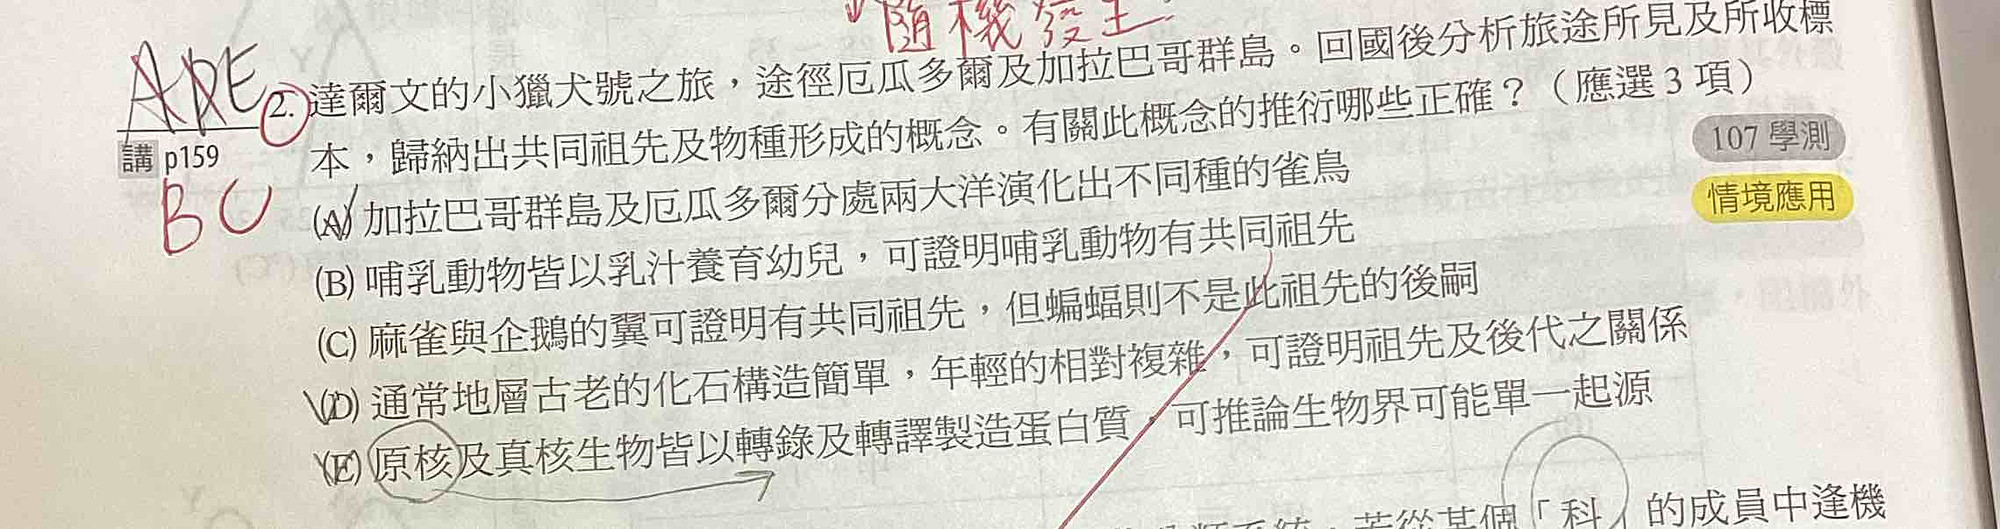 隨機發生
ADE
2. 達爾文的小獵犬號之旅，途徑厄瓜多爾及加拉巴哥群島。回國後分析旅途所見及所收標
本，歸納出共同祖先及物種形成的概念。有關此概念的推衍哪些正確？（應選 3 項）
講 p159
107 學測
BC
情境應用
(A) 加拉巴哥群島及厄瓜多爾分處兩大洋演化出不同種的雀鳥
(B) 哺乳動物皆以乳汁養育幼兒，可證明哺乳動物有共同祖先
(C) 麻雀與企鵝的翼可證明有共同祖先，但蝙蝠則不是此祖先的後嗣
(D) 通常地層古老的化石構造簡單，年輕的相對複雜，可證明祖先及後代之關係
(E) 原核及真核生物皆以轉錄及轉譯製造蛋白質，可推論生物界可能單一起源
若從某個「科」的成員中逢機